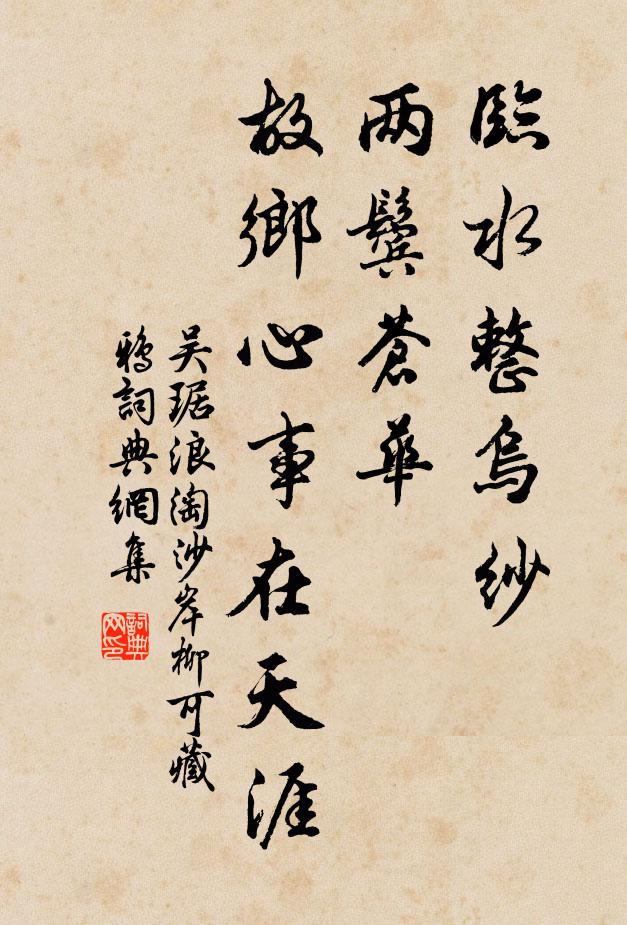 臨水整烏紗
两鬢蒼華
故鄉心事在天涯
吴琚浪淘沙岸柳可藏
鴉詞典網集
詞典网印